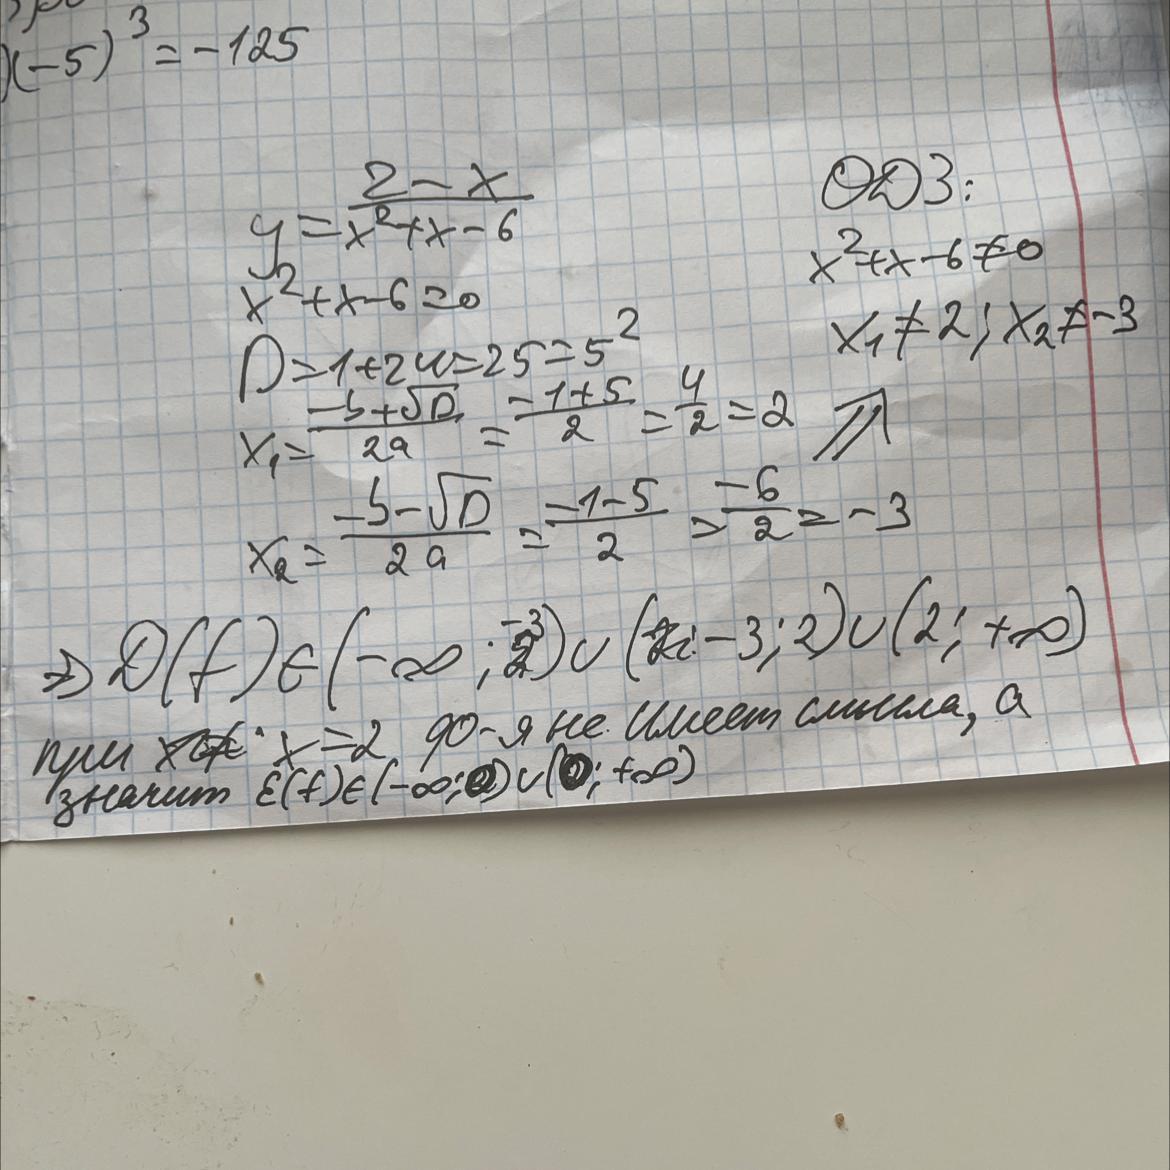 )(-5)³ = -125
y = (2 - x)/(x² + x - 6)
ОДЗ:
x² + x - 6 ≠ 0
x² + x - 6 = 0
x₁ ≠ 2; x₂ ≠ -3
D = 1 + 24 = 25 = 5²
x₁ = (-b + √D)/(2a) = (-1 + 5)/2 = 4/2 = 2
x₂ = (-b - √D)/(2a) = (-1 - 5)/2 = -6/2 = -3
⇒ D(f) ∈ (-∞; -3) ∪ (-3; 2) ∪ (2; +∞)
при x = 2 ф-я не имеет смысла, а
значит E(f) ∈ (-∞; 0) ∪ (0; +∞)